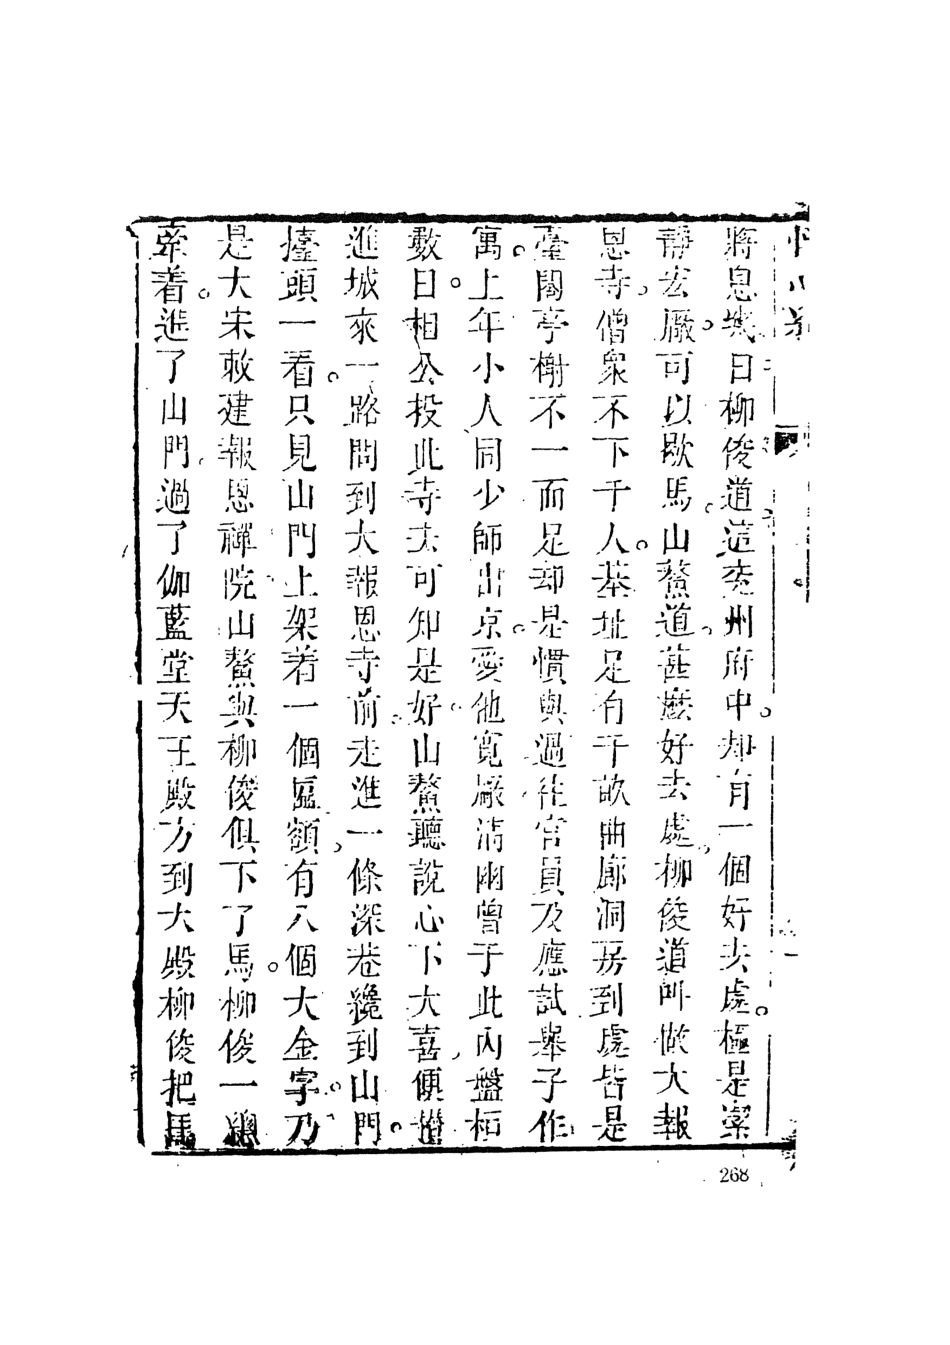 將息幾日柳俊道這兗州府中却有一個好去處極是潔
靜宏厰可以歇馬山鰲道甚麽好去處柳俊道呌做大報
恩寺僧衆不下千人基址足有千畝曲廊洞房到處皆是
臺閣亭榭不一而足却是慣與過往官員及應試舉子作
寓上年小人同少師出京愛他寬厰清幽曾于此内盤桓
數日相公投此寺去可知是好山鰲聽說心下大喜便攢
進城來一路問到大報恩寺前走進一條深巷纔到山門
擡頭一看只見山門上架着一個匾額有八個大金字乃
是大宋敕建報恩禪院山鰲與柳俊俱下了馬柳俊一總
牽着進了山門過了伽藍堂天王殿方到大殿柳俊把馬
268